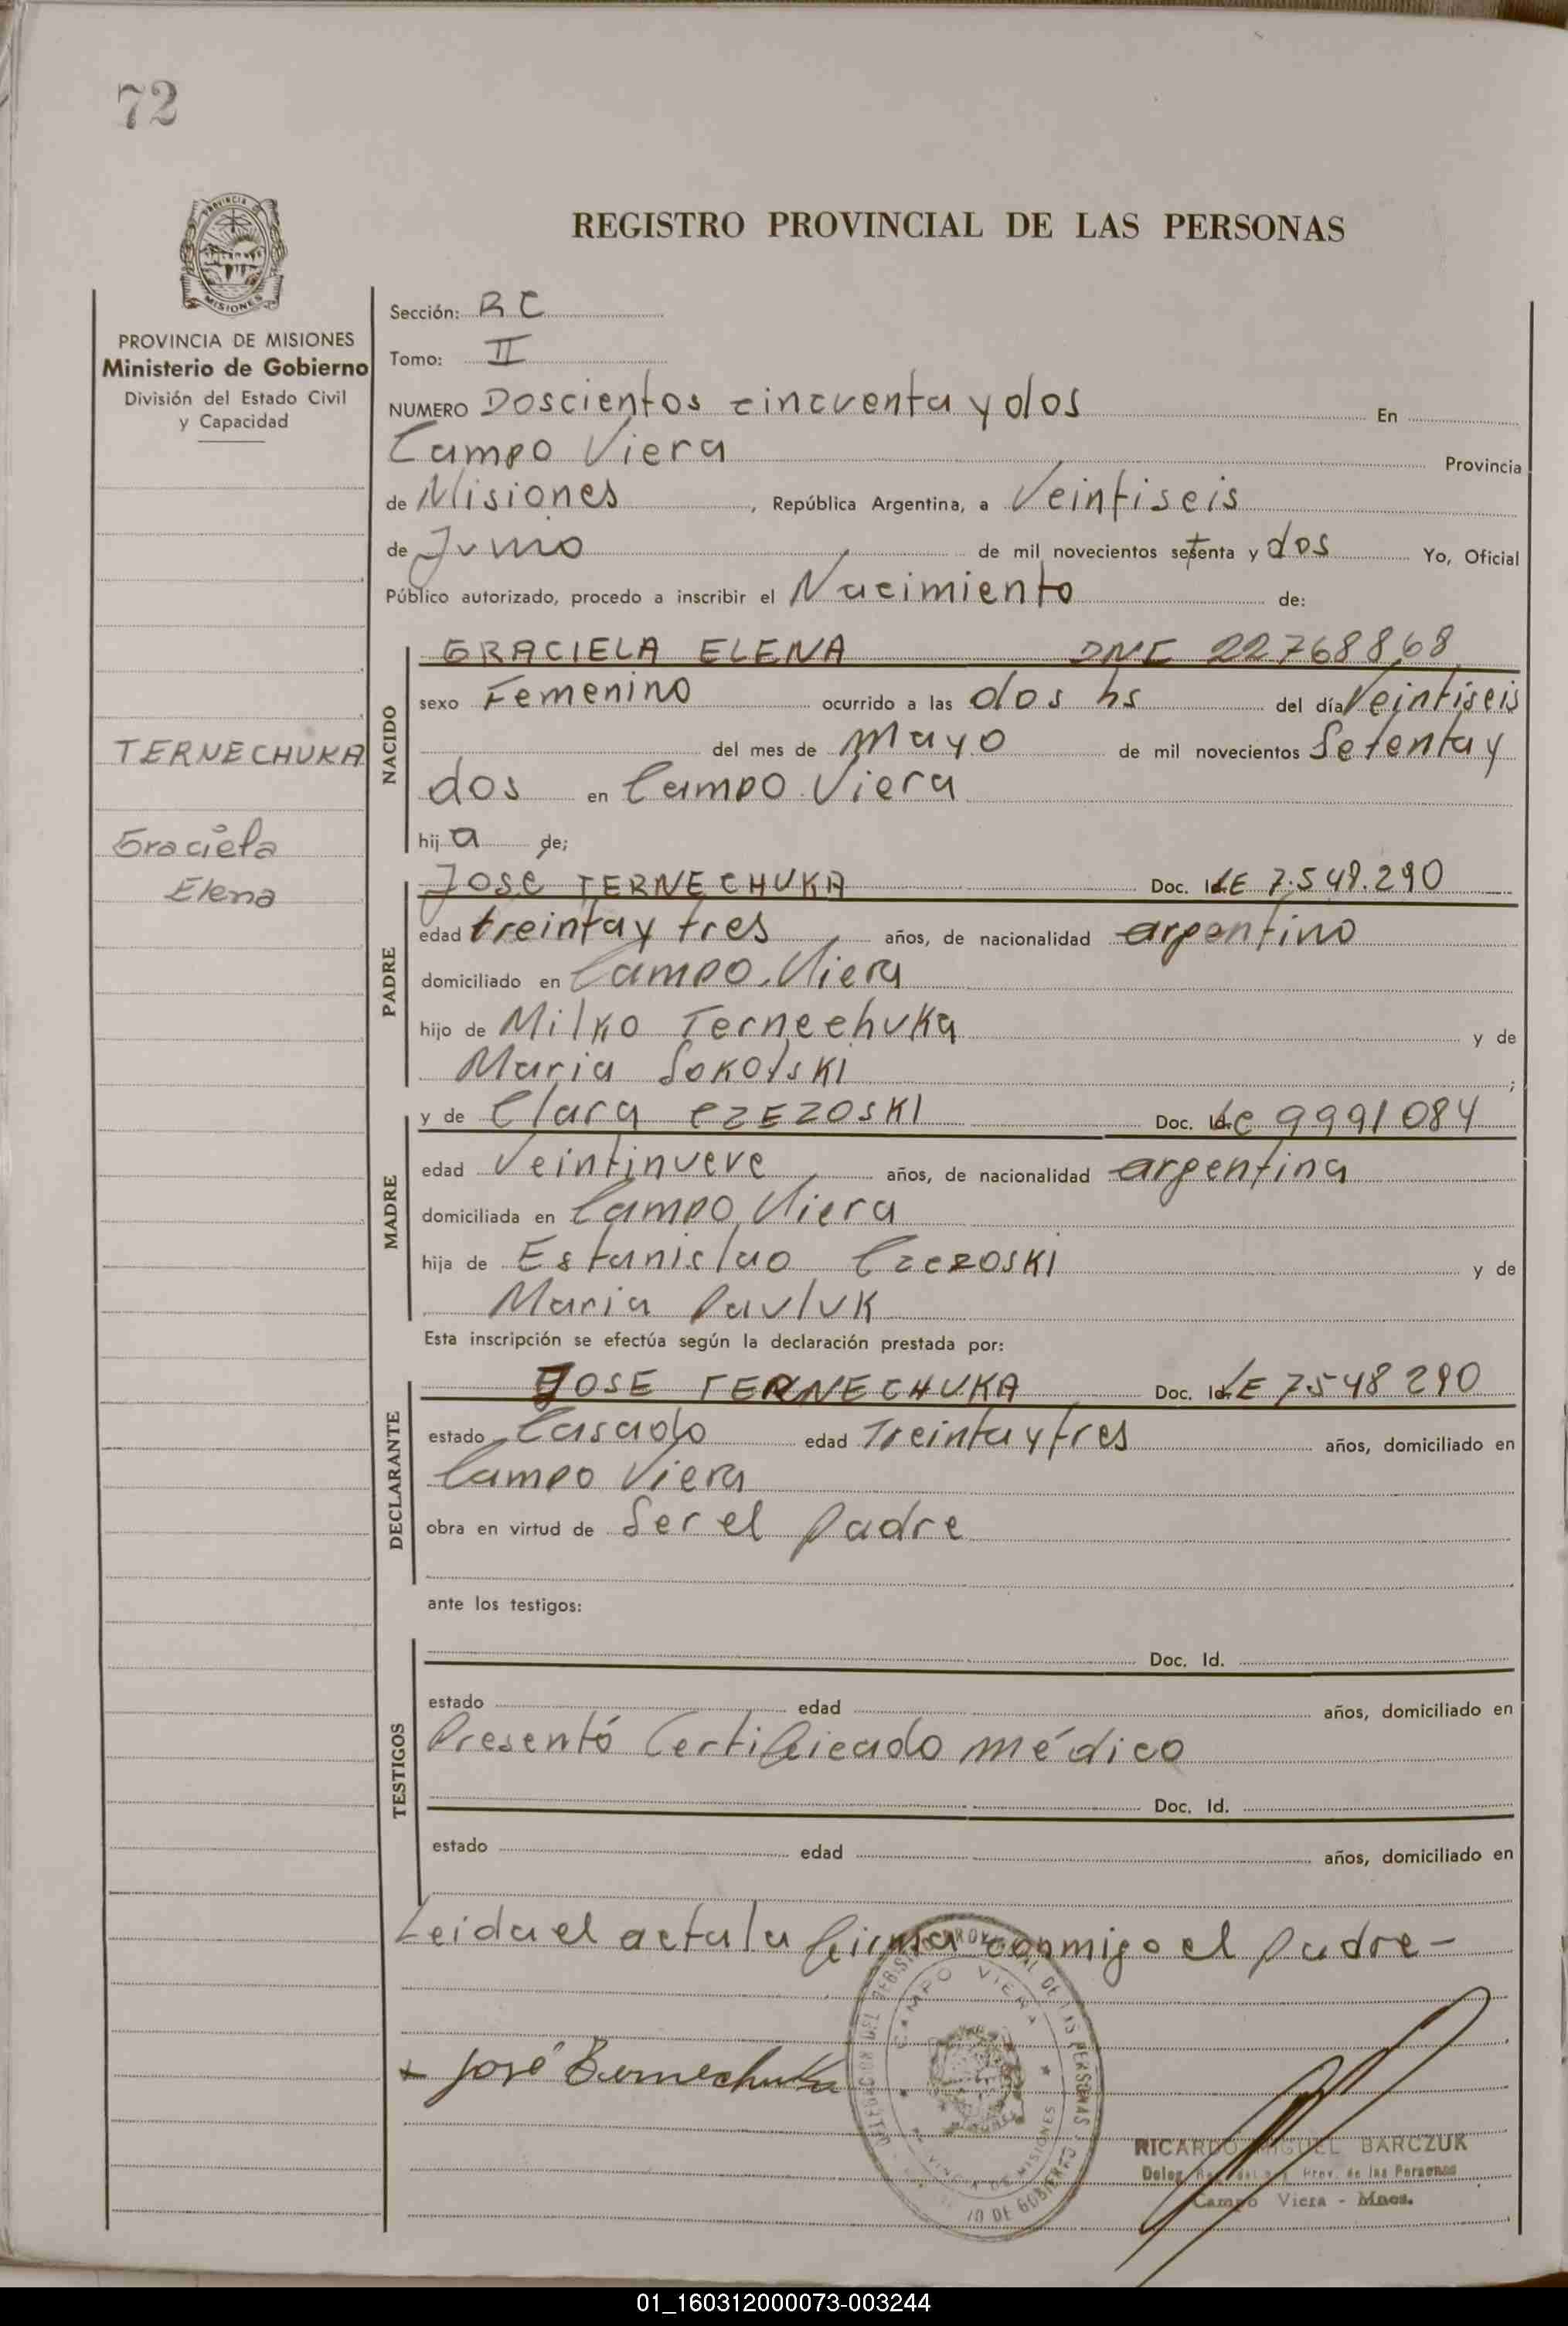 72
REGISTRO PROVINCIAL DE LAS PERSONAS
PROVINCIA
MISIONES
PROVINCIA DE MISIONES
Ministerio de Gobierno
División del Estado Civil
y Capacidad
TERNECHUKA
Graciela
Elena
Sección: RC
Tomo: II
NUMERO Doscientos cincuenta y dos En
Campo Viera Provincia
de Misiones, República Argentina, a Veintiseis
de Junio de mil novecientos setenta y dos Yo, Oficial
Público autorizado, procedo a inscribir el Nacimiento de:
NACIDO
GRACIELA ELENA DNI 22768868
sexo Femenino ocurrido a las dos hs del día Veintiseis
del mes de Mayo de mil novecientos Setenta y
dos en Campo Viera
hija de;
PADRE
José TERNECHUKA Doc. LE 7.548.290
edad treinta y tres años, de nacionalidad argentino
domiciliado en Campo Viera
hijo de Milko Ternechuka y de
Maria Sokolski;
MADRE
y de Clara CZEZOSKI Doc. Id. LC 9991084
edad Veintinueve años, de nacionalidad argentina
domiciliada en Campo Viera
hija de Estanislao Czezoski y de
Maria Pavluk
Esta inscripción se efectúa según la declaración prestada por:
DECLARANTE
JOSE TERNECHUKA Doc. Id. LE 7548290
estado Casado edad Treinta y tres años, domiciliado en
Campo Viera
obra en virtud de Ser el Padre
ante los testigos:
TESTIGOS
Doc. Id.
estado edad años, domiciliado en
Presentó Certificado médico
Doc. Id.
estado edad años, domiciliado en
Leida el acta la firma conmigo el Padre-
José Ternechuka
CAMPO VIERA
RICARDO MIGUEL BARCZUK
Deleg. Prov. de las Personas
Campo Viera - Mnes.
01_160312000073-003244